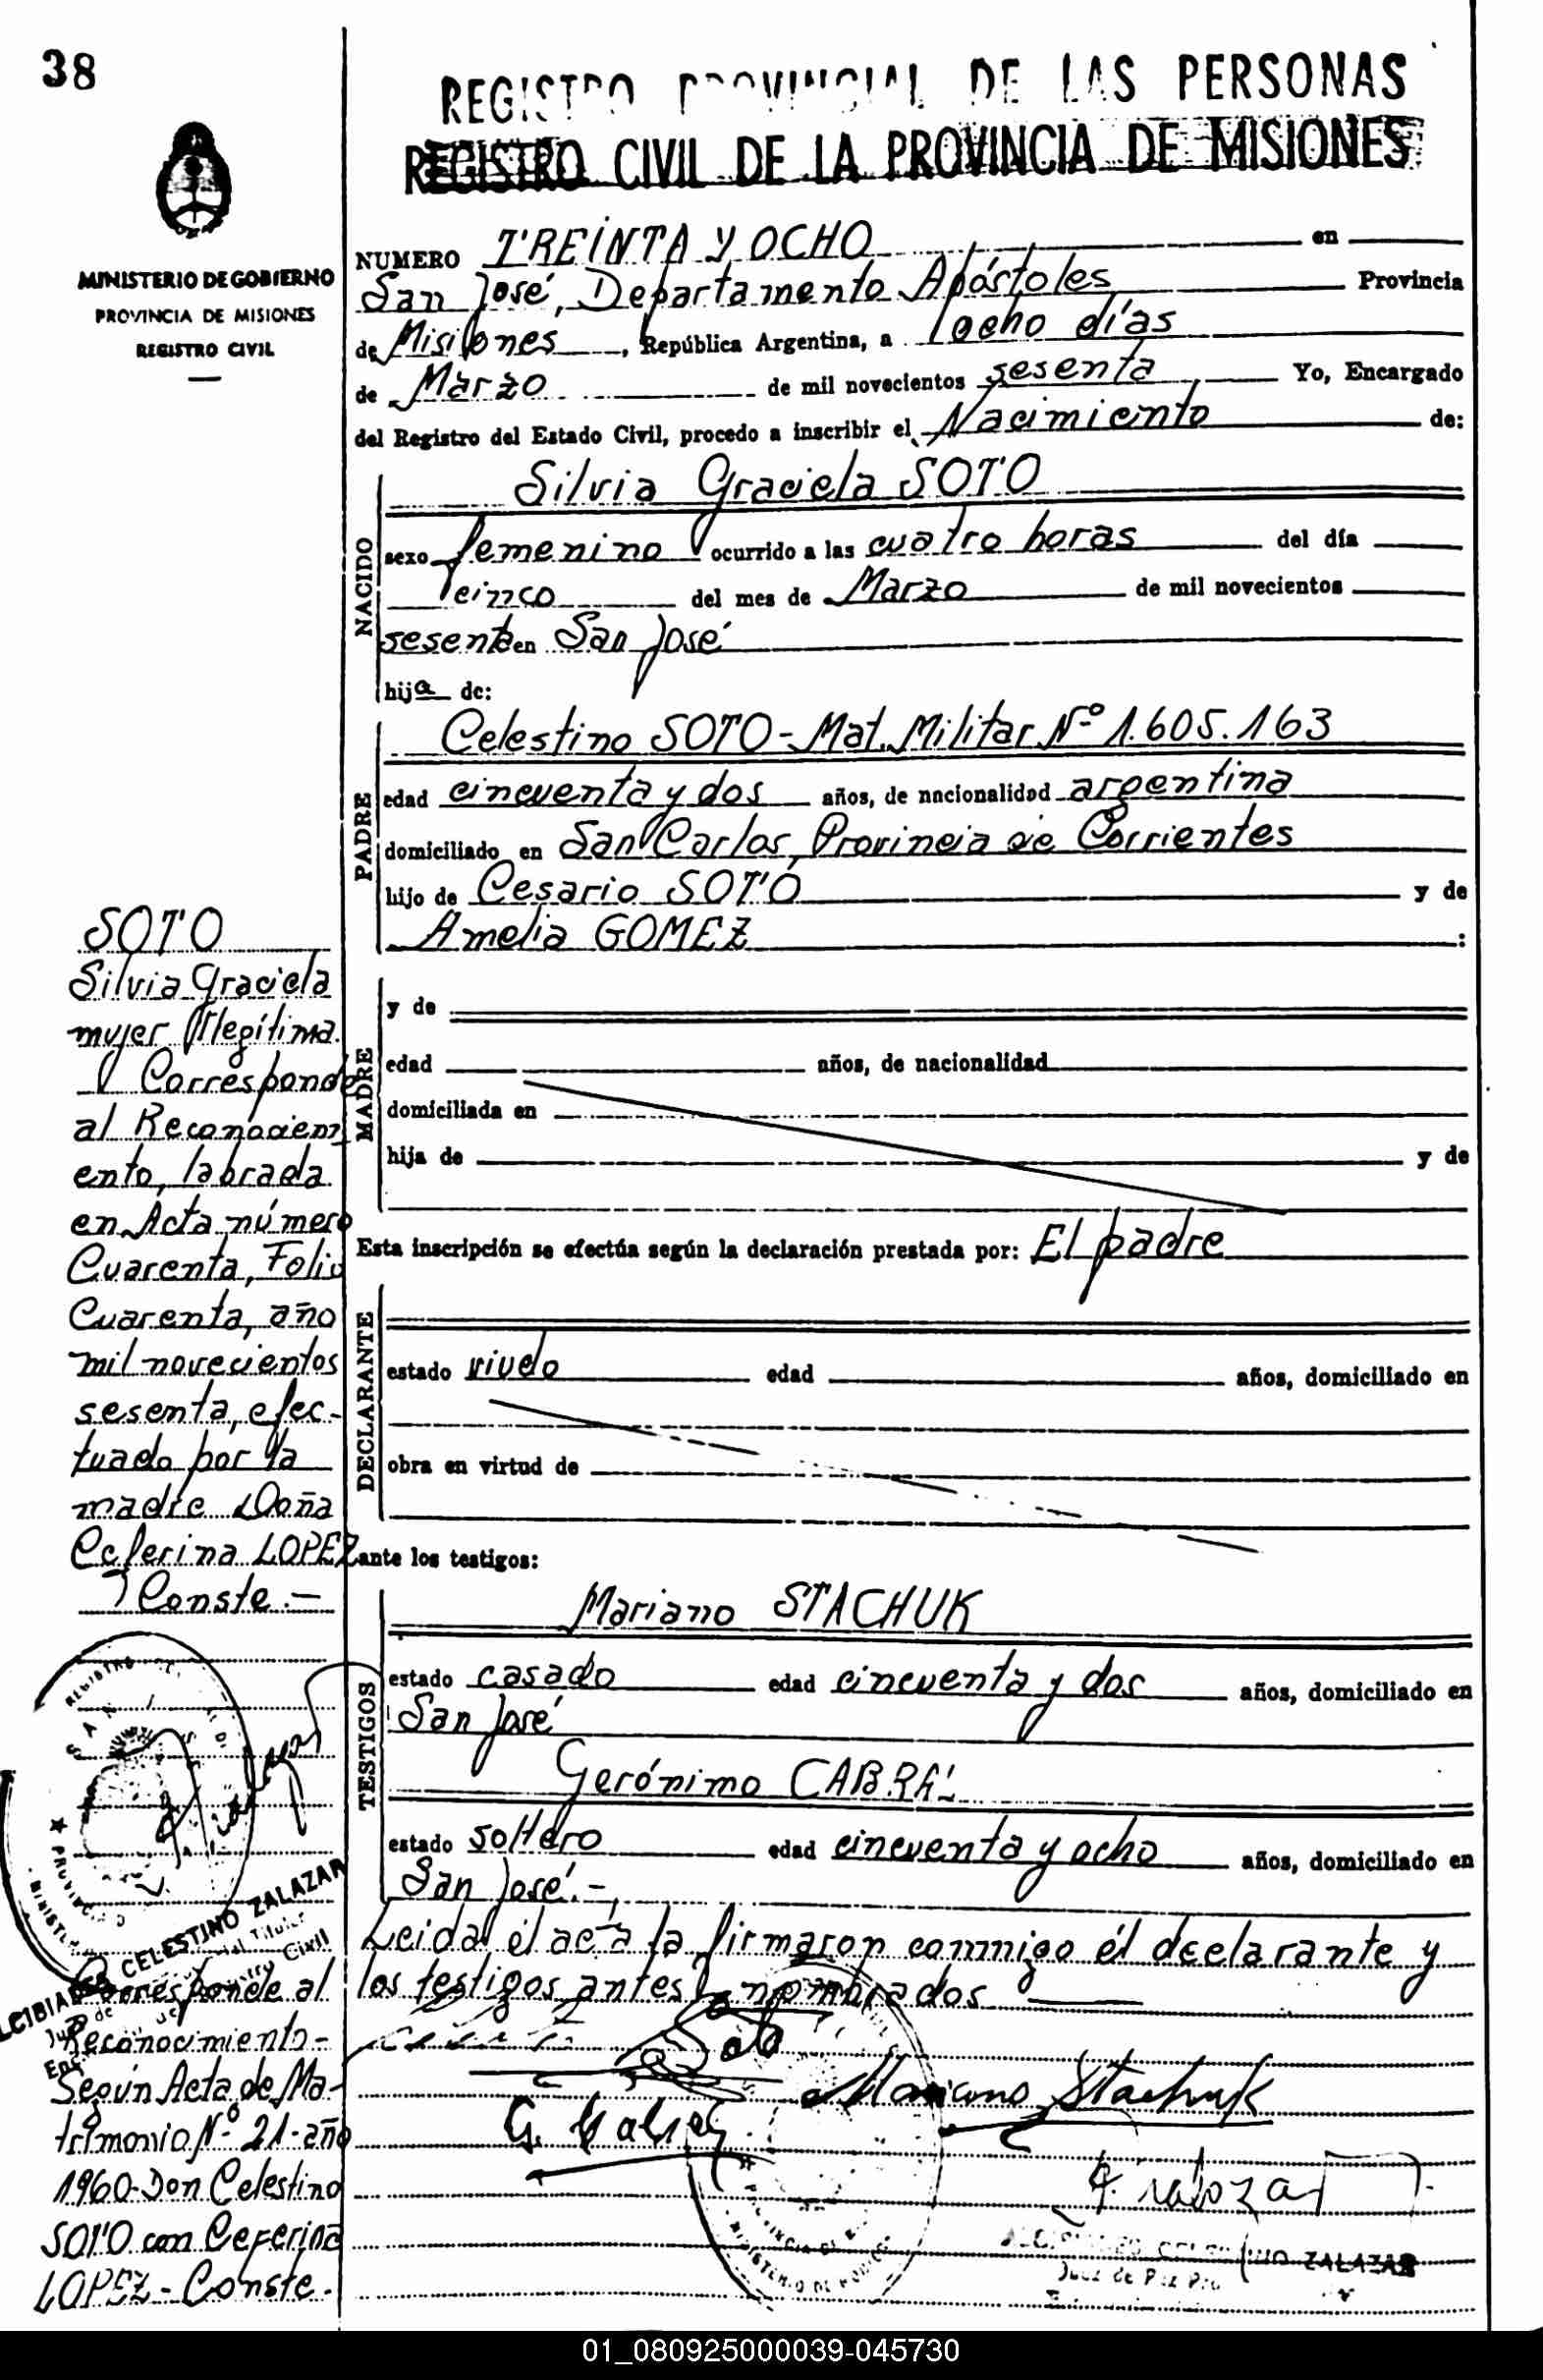 38
REGISTRO PROVINCIAL DE LAS PERSONAS
REGISTRO CIVIL DE LA PROVINCIA DE MISIONES
MINISTERIO DE GOBIERNO
PROVINCIA DE MISIONES
REGISTRO CIVIL
NUMERO TREINTA Y OCHO en
San José, Departamento Apóstoles Provincia
de Misiones, República Argentina, a ocho días
de Marzo de mil novecientos sesenta Yo, Encargado
del Registro del Estado Civil, procedo a inscribir el Nacimiento de:
NACIDO
Silvia Graciela SOTO
sexo femenino ocurrido a las cuatro horas del día
cinco del mes de Marzo de mil novecientos
sesenta en San José
hija de:
PADRE
Celestino SOTO - Mat. Militar Nº 1.605.163
edad cincuenta y dos años, de nacionalidad argentina
domiciliado en San Carlos, Provincia de Corrientes
hijo de Cesario SOTO y de
Amelia GOMEZ :
MADRE
y de
edad años, de nacionalidad
domiciliada en
hija de y de
Esta inscripción se efectúa según la declaración prestada por: El padre
DECLARANTE
estado viudo edad años, domiciliado en
obra en virtud de
ante los testigos:
TESTIGOS
Mariano STACHUK
estado casado edad cincuenta y dos años, domiciliado en
San José
Gerónimo CABRAL
estado soltero edad cincuenta y ocho años, domiciliado en
San José.-
Leida el acta la firmaron conmigo él declarante y
los testigos antes nombrados
Soto
Mariano Stachuk
G. Cabral
ZALAZAR
Juez de Paz
SOTO
Silvia Graciela
mujer Ilegítima.
Corresponde
al Reconocimi
ento, labrada
en Acta número
Cuarenta, Folio
Cuarenta, año
mil novecientos
sesenta, efec-
tuado por la
madre Doña
Ceferina LOPEZ
Conste.-
CELESTINO ZALAZAR
Corresponde al
Reconocimiento-
Según Acta de Ma-
trimonio Nº 21-año
1960-Don Celestino
SOTO con Ceferina
LOPEZ - Conste.
01_080925000039-045730